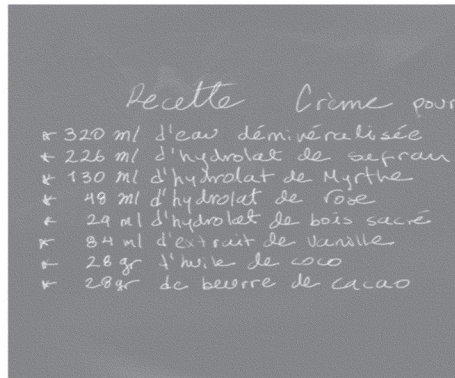 Recette Crème pour
* 320 ml d'eau déminéralisée
* 226 ml d'hydrolat de safran
* 130 ml d'hydrolat de Myrthe
* 48 ml d'hydrolat de rose
* 29 ml d'hydrolat de bois sacré
* 84 ml d'extrait de vanille
* 28 gr d'huile de coco
* 28 gr de beurre de cacao